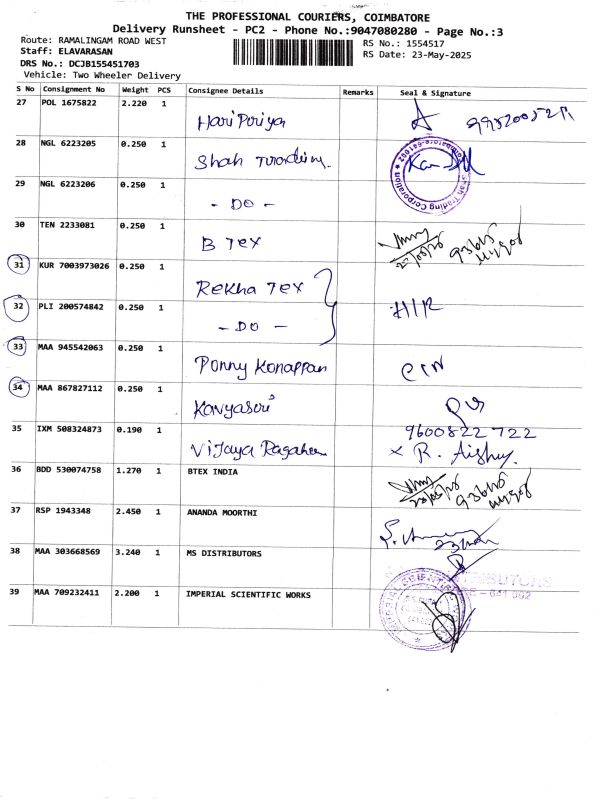 THE PROFESSIONAL COURIERS, COIMBATORE
Delivery Runsheet - PC2 - Phone No.:9047080280 - Page No.:3
Route: RAMALINGAM ROAD WEST
RS No.: 1554517
Staff: ELAVARASAN
RS Date: 23-May-2025
DRS No.: DCJB155451703
Vehicle: Two Wheeler Delivery
S No Consignment No Weight PCS Consignee Details Remarks Seal & Signature
27 POL 1675822 2.220 1 Hari Poriya
28 NGL 6223205 0.250 1 Shah
29 NGL 6223206 0.250 1 - DO -
30 TEN 2233081 0.250 1 B Tex
31 KUR 7003973026 0.250 1 Rekha Tex
32 PLI 200574842 0.250 1 - DO - H/R
33 MAA 945542063 0.250 1 Ponny Konappan
34 MAA 867827112 0.250 1 Kavyasori
35 IXM 508324873 0.190 1 Vijaya 9600822 722
x R. Aishu
36 BDD 530074758 1.270 1 BTEX INDIA
37 RSP 1943348 2.450 1 ANANDA MOORTHI
38 MAA 303668569 3.240 1 MS DISTRIBUTORS
39 MAA 709232411 2.200 1 IMPERIAL SCIENTIFIC WORKS